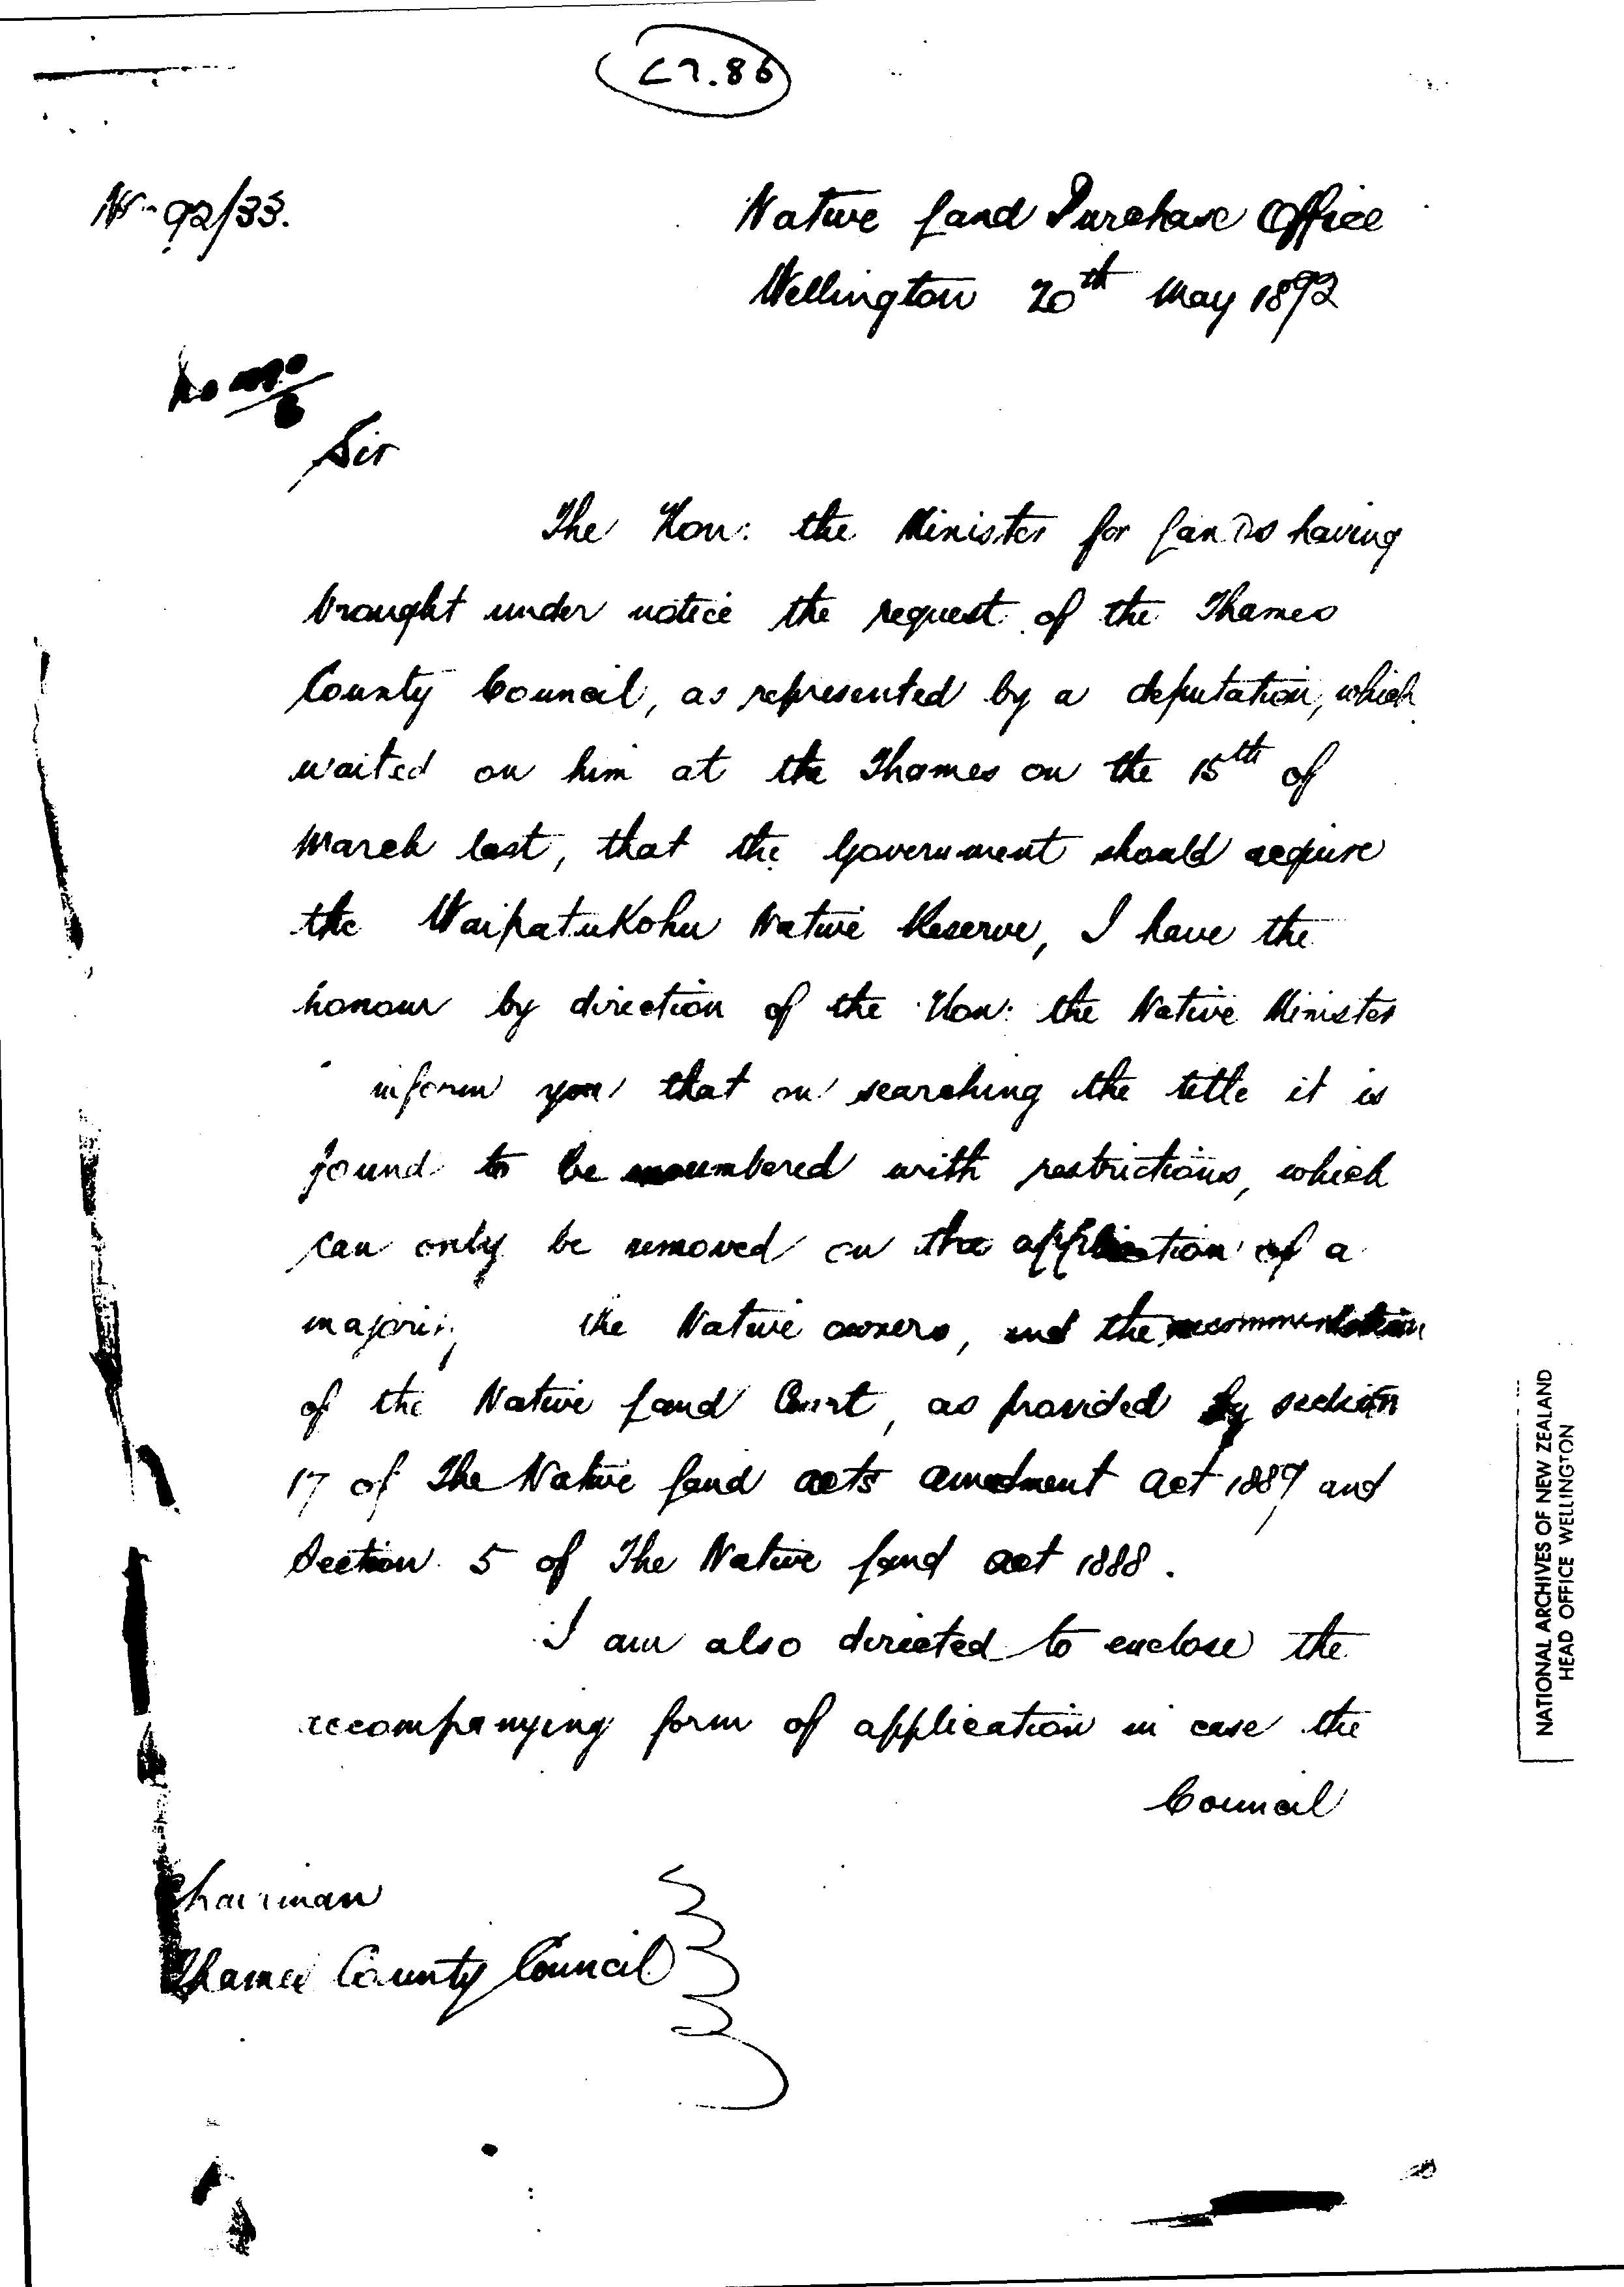 27.86
No 92/33.
Native Land Purchase Office
Wellington 20th May 1892
Sir
The Hon: the Minister for Lands having
brought under notice the request of the Thames
County Council, as represented by a deputation, which
waited on him at the Thames on the 15th of
March last, that the Government should acquire
the Waipatukohu Native Reserve, I have the
honour by direction of the Hon: the Native Minister
inform you that on searching the title it is
found to be encumbered with restrictions, which
can only be removed on the application of a
majority the Native owners, and the recommendation
of the Native Land Court, as provided by section
17 of The Native Land acts amendment act 1889 and
Section 5 of The Native Land act 1888.
I am also directed to enclose the
accompanying form of application in case the
Council
Chairman
Thames County Council
NATIONAL ARCHIVES OF NEW ZEALAND
HEAD OFFICE WELLINGTON